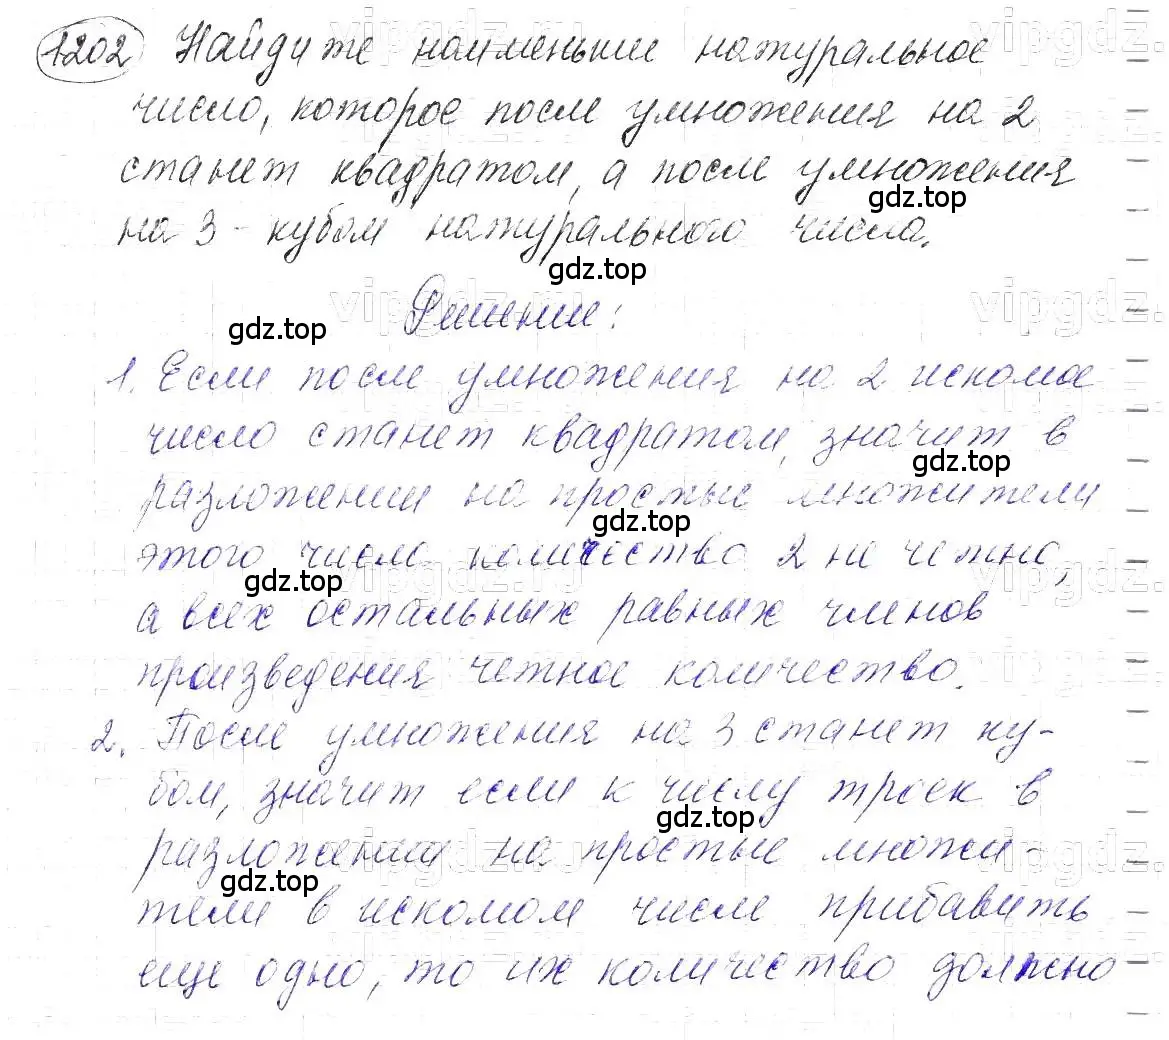 1202 Найдите наименьшие натуральное
число, которое после умножения на 2
станет квадратом, а после умножения
gdz.top
на 3 - кубом натурального числа.
gdz.top
vipgdz.ru
Решение:
gdz.top
1. Если после умножения на 2 искомое
число станет квадратом, значит в
gdz.top
разложении на простые множители
gdz.top
этого число количество 2 не четно,
gdz.top
а всех остальных равных членов
произведения четное количество.
2. После умножения на 3 станет ку-
бом, значит если к числу троек в
gdz.top
разложении на простые множи-
gdz.top
тели в искомом числе прибавить
еще одно, то их количество должно